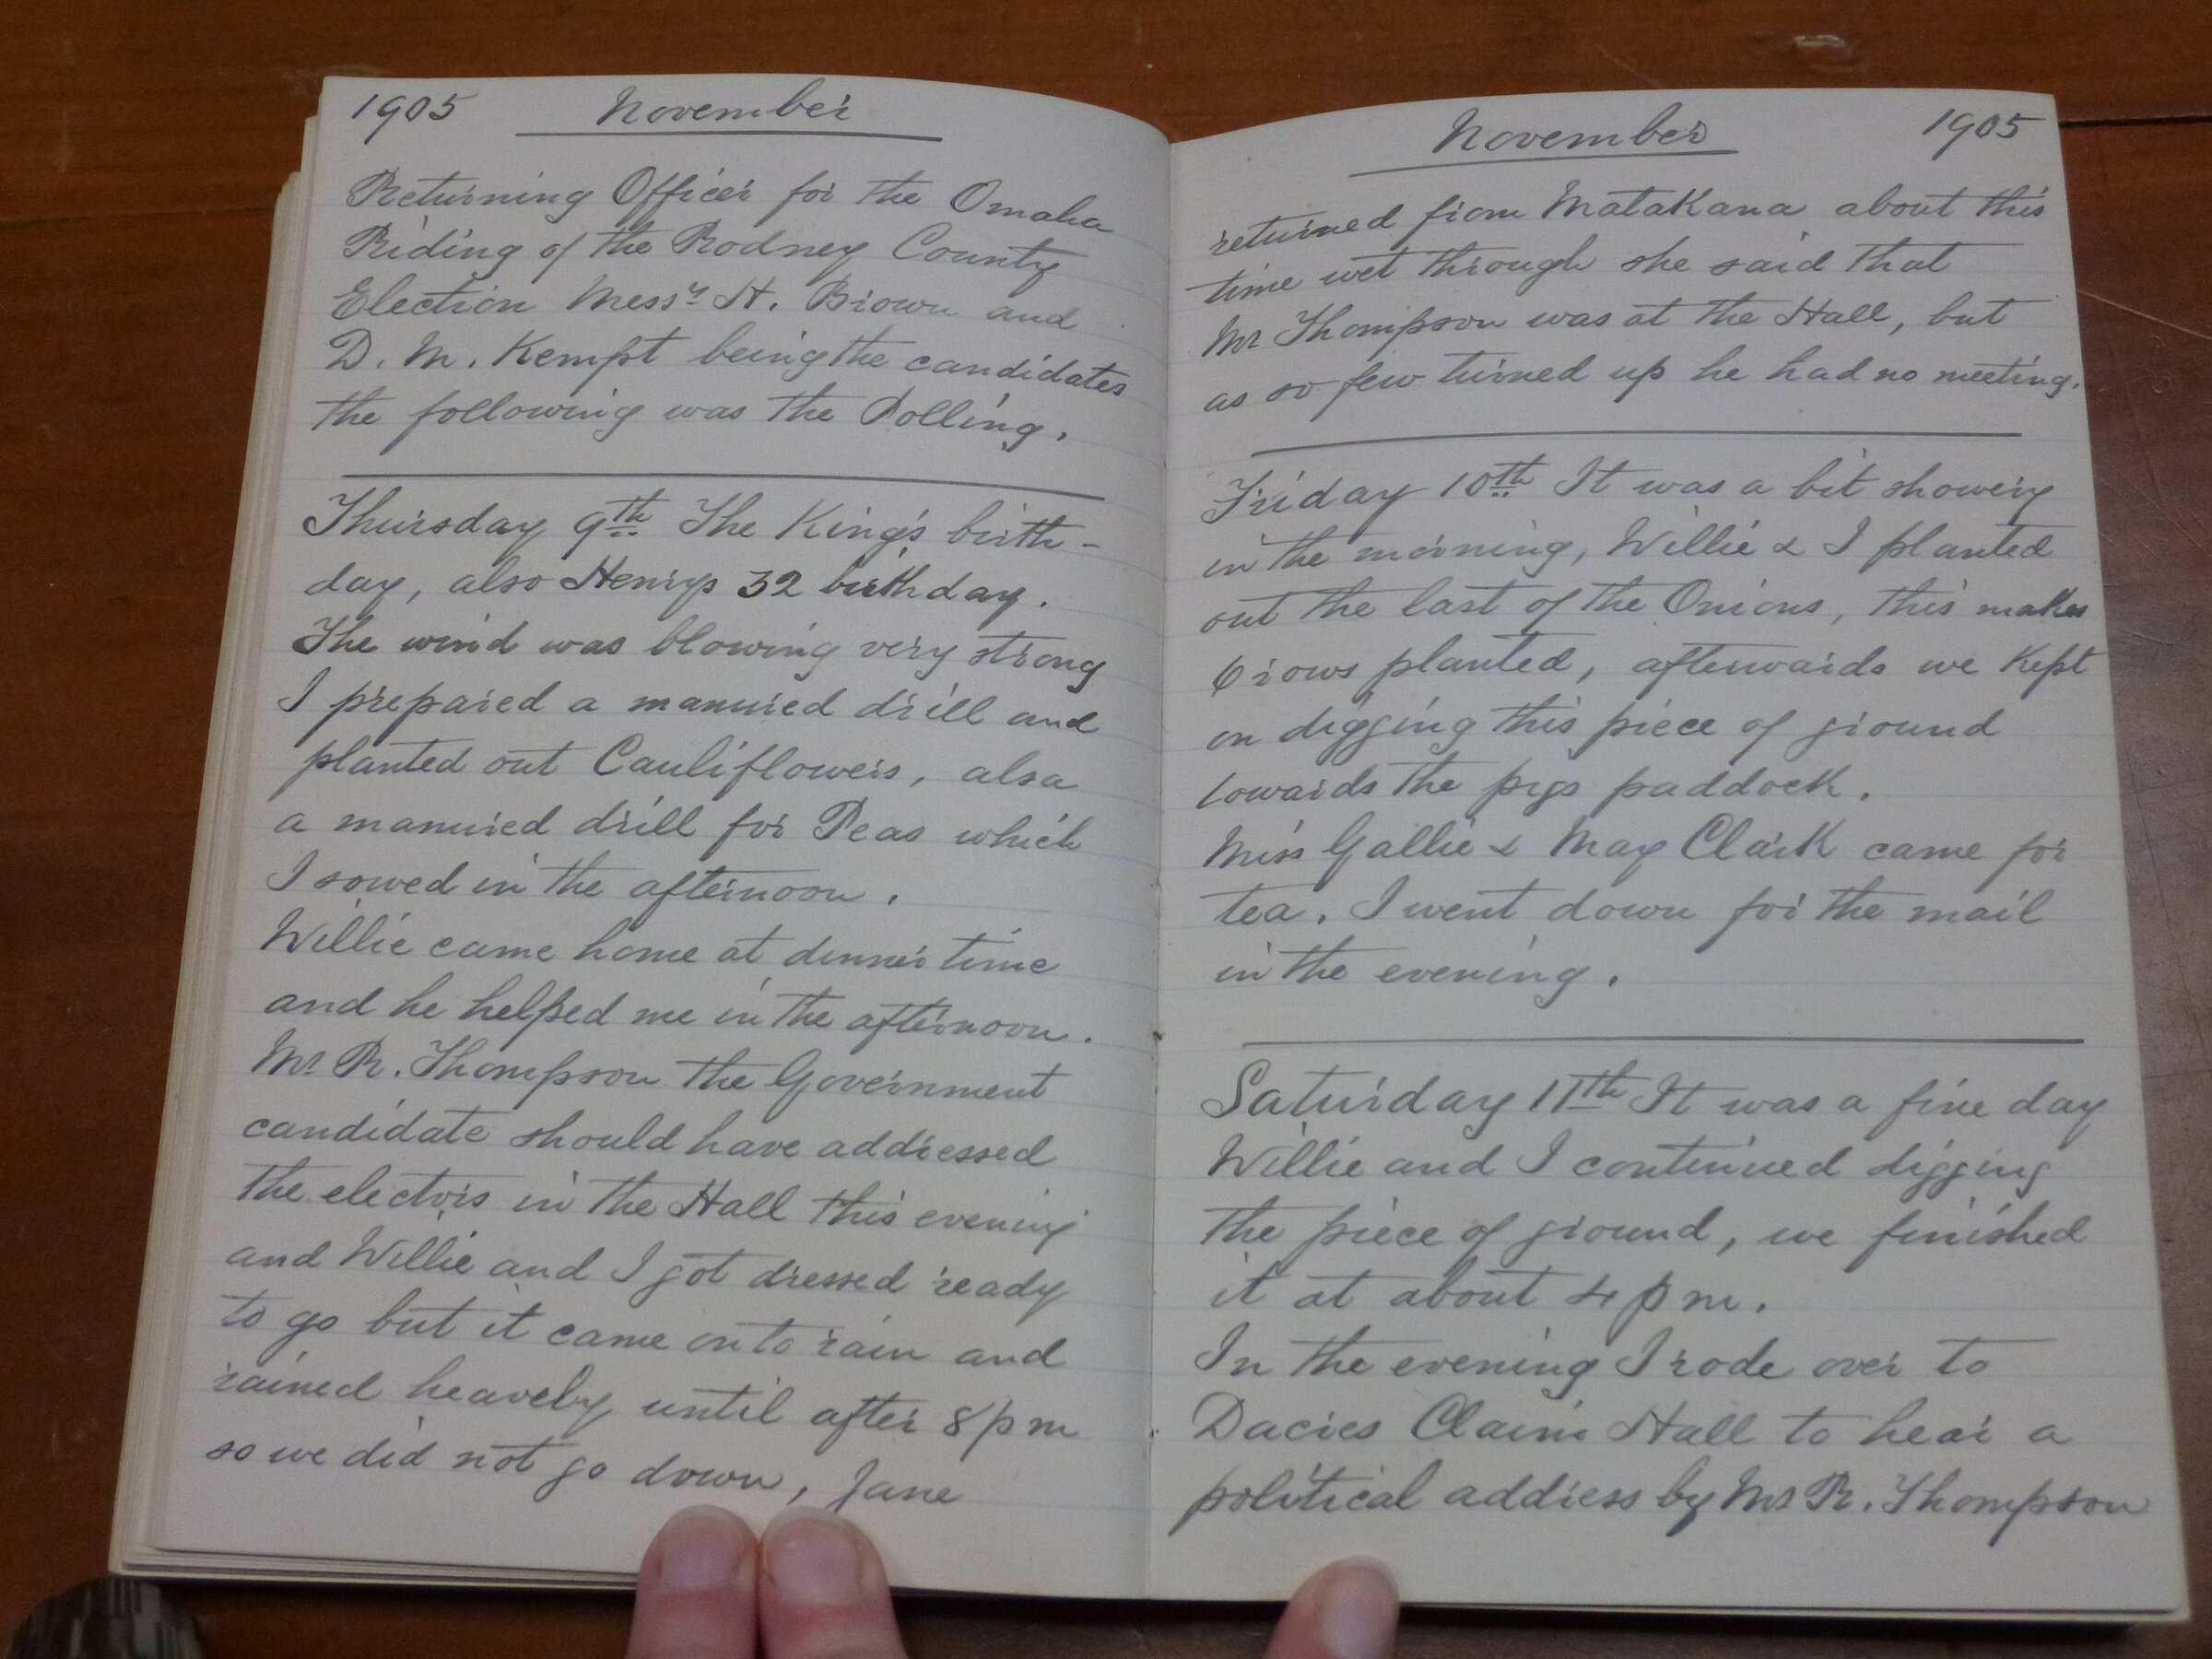 1905 November
Returning Officer for the Omaha
Riding of the Rodney County
Election Messrs H. Brown and
D. M. Kempt being the candidates
the following was the Polling.
Thursday 9th The King's birth-
day, also Henrys 32 birthday.
The wind was blowing very strong
I prepared a manured drill and
planted out Cauliflowers, also
a manured drill for Peas which
I sowed in the afternoon.
Willie came home at dinner time
and he helped me in the afternoon.
Mr R. Thompson the Government
candidate should have addressed
the electors in the Hall this evening
and Willie and I got dressed ready
to go but it came on to rain and
rained heavely until after 8 pm
so we did not go down, Jane
November 1905
returned from Matakana about this
time wet through she said that
Mr Thompson was at the Hall, but
as so few turned up he had no meeting.
Friday 10th It was a bit showery
in the morning, Willie & I planted
out the last of the Onions, this makes
6 rows planted, afterwards we kept
on digging this piece of ground
towards the pigs paddock.
Miss Gallie & May Clark came for
tea. I went down for the mail
in the evening.
Saturday 11th It was a fine day
Willie and I continued digging
the piece of ground, we finished
it at about 4 pm.
In the evening I rode over to
Dacies Claim Hall to hear a
political address by Mr R. Thompson